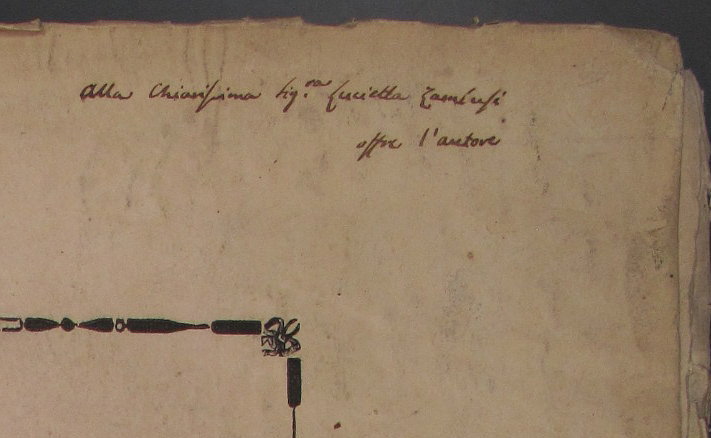 Alla Chiarissima Sig.ra Lucietta Zambusi
offre l'autore